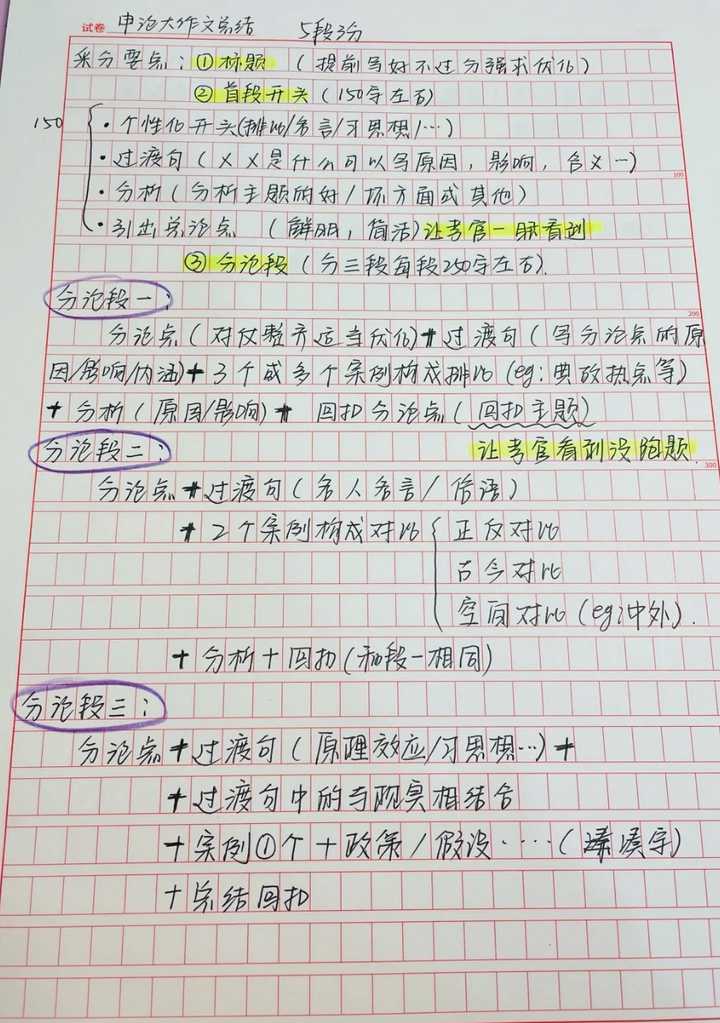 试卷 申论大作文总结 5段3分
采分要点：①标题（提前写好不过分强求优化）
②首段开头（150字左右）
150
·个性化开头(排比/名言/习思想/…)
·过渡句（××是什么可以写原因，影响，含义…）
100
·分析（分析主题的好/坏方面或其他）
·引出总论点（鲜明，简洁)让考官一眼看到
③分论段（分三段每段250字左右).
分论段一：
200
分论点（对仗整齐适当优化)+过渡句（写分论点的原
因/影响/内涵)+3个或多个案例构成排比(eg:典故热点等)
+分析（原因/影响)+回扣分论点（回扣主题)
分论段二：让考官看到没跑题.
300
分论点+过渡句（名人名言/俗语）
+2个案例构成对比{正反对比
古今对比
空间对比(eg:中外).
+分析+回扣(和段一相同)
分论段三：
分论点+过渡句（原理效应/习思想…)+
+过渡句中的与现实相结合
+案例①个+政策/假设····（凑字）
+总结回扣